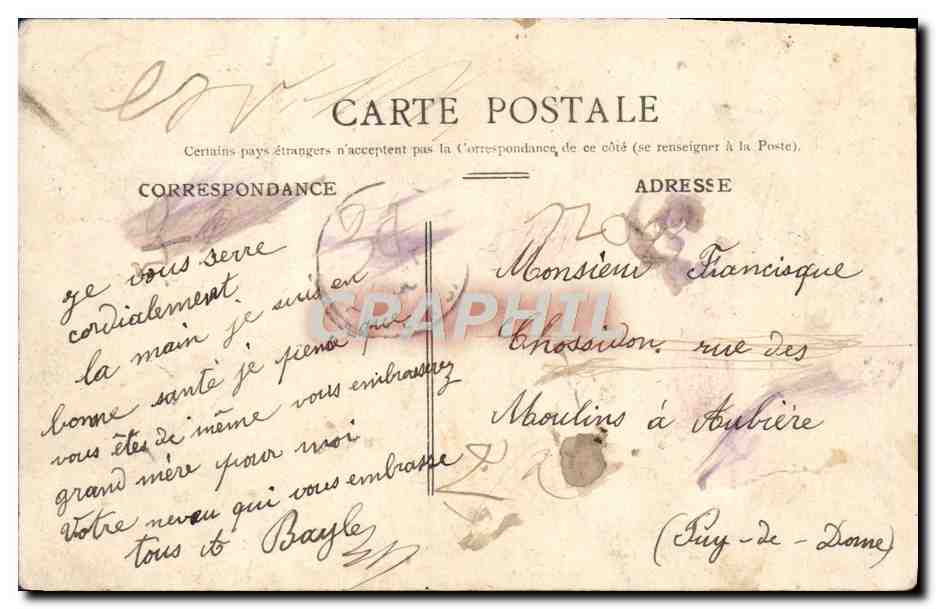 CARTE POSTALE
Certains pays étrangers n'acceptent pas la Correspondance de ce côté (se renseigner à la Poste).
CORRESPONDANCE
je vous serre
cordialement
la main je suis en
bonne santé je pense que
vous êtes de même vous embrasserez
grand mère pour moi
Votre neveu qui vous embrasse
tous Bayle
ADRESSE
Monsieur Francisque
Chossidon rue des
Moulins à Aubière
(Puy-de-Dome)
CRAPHIL